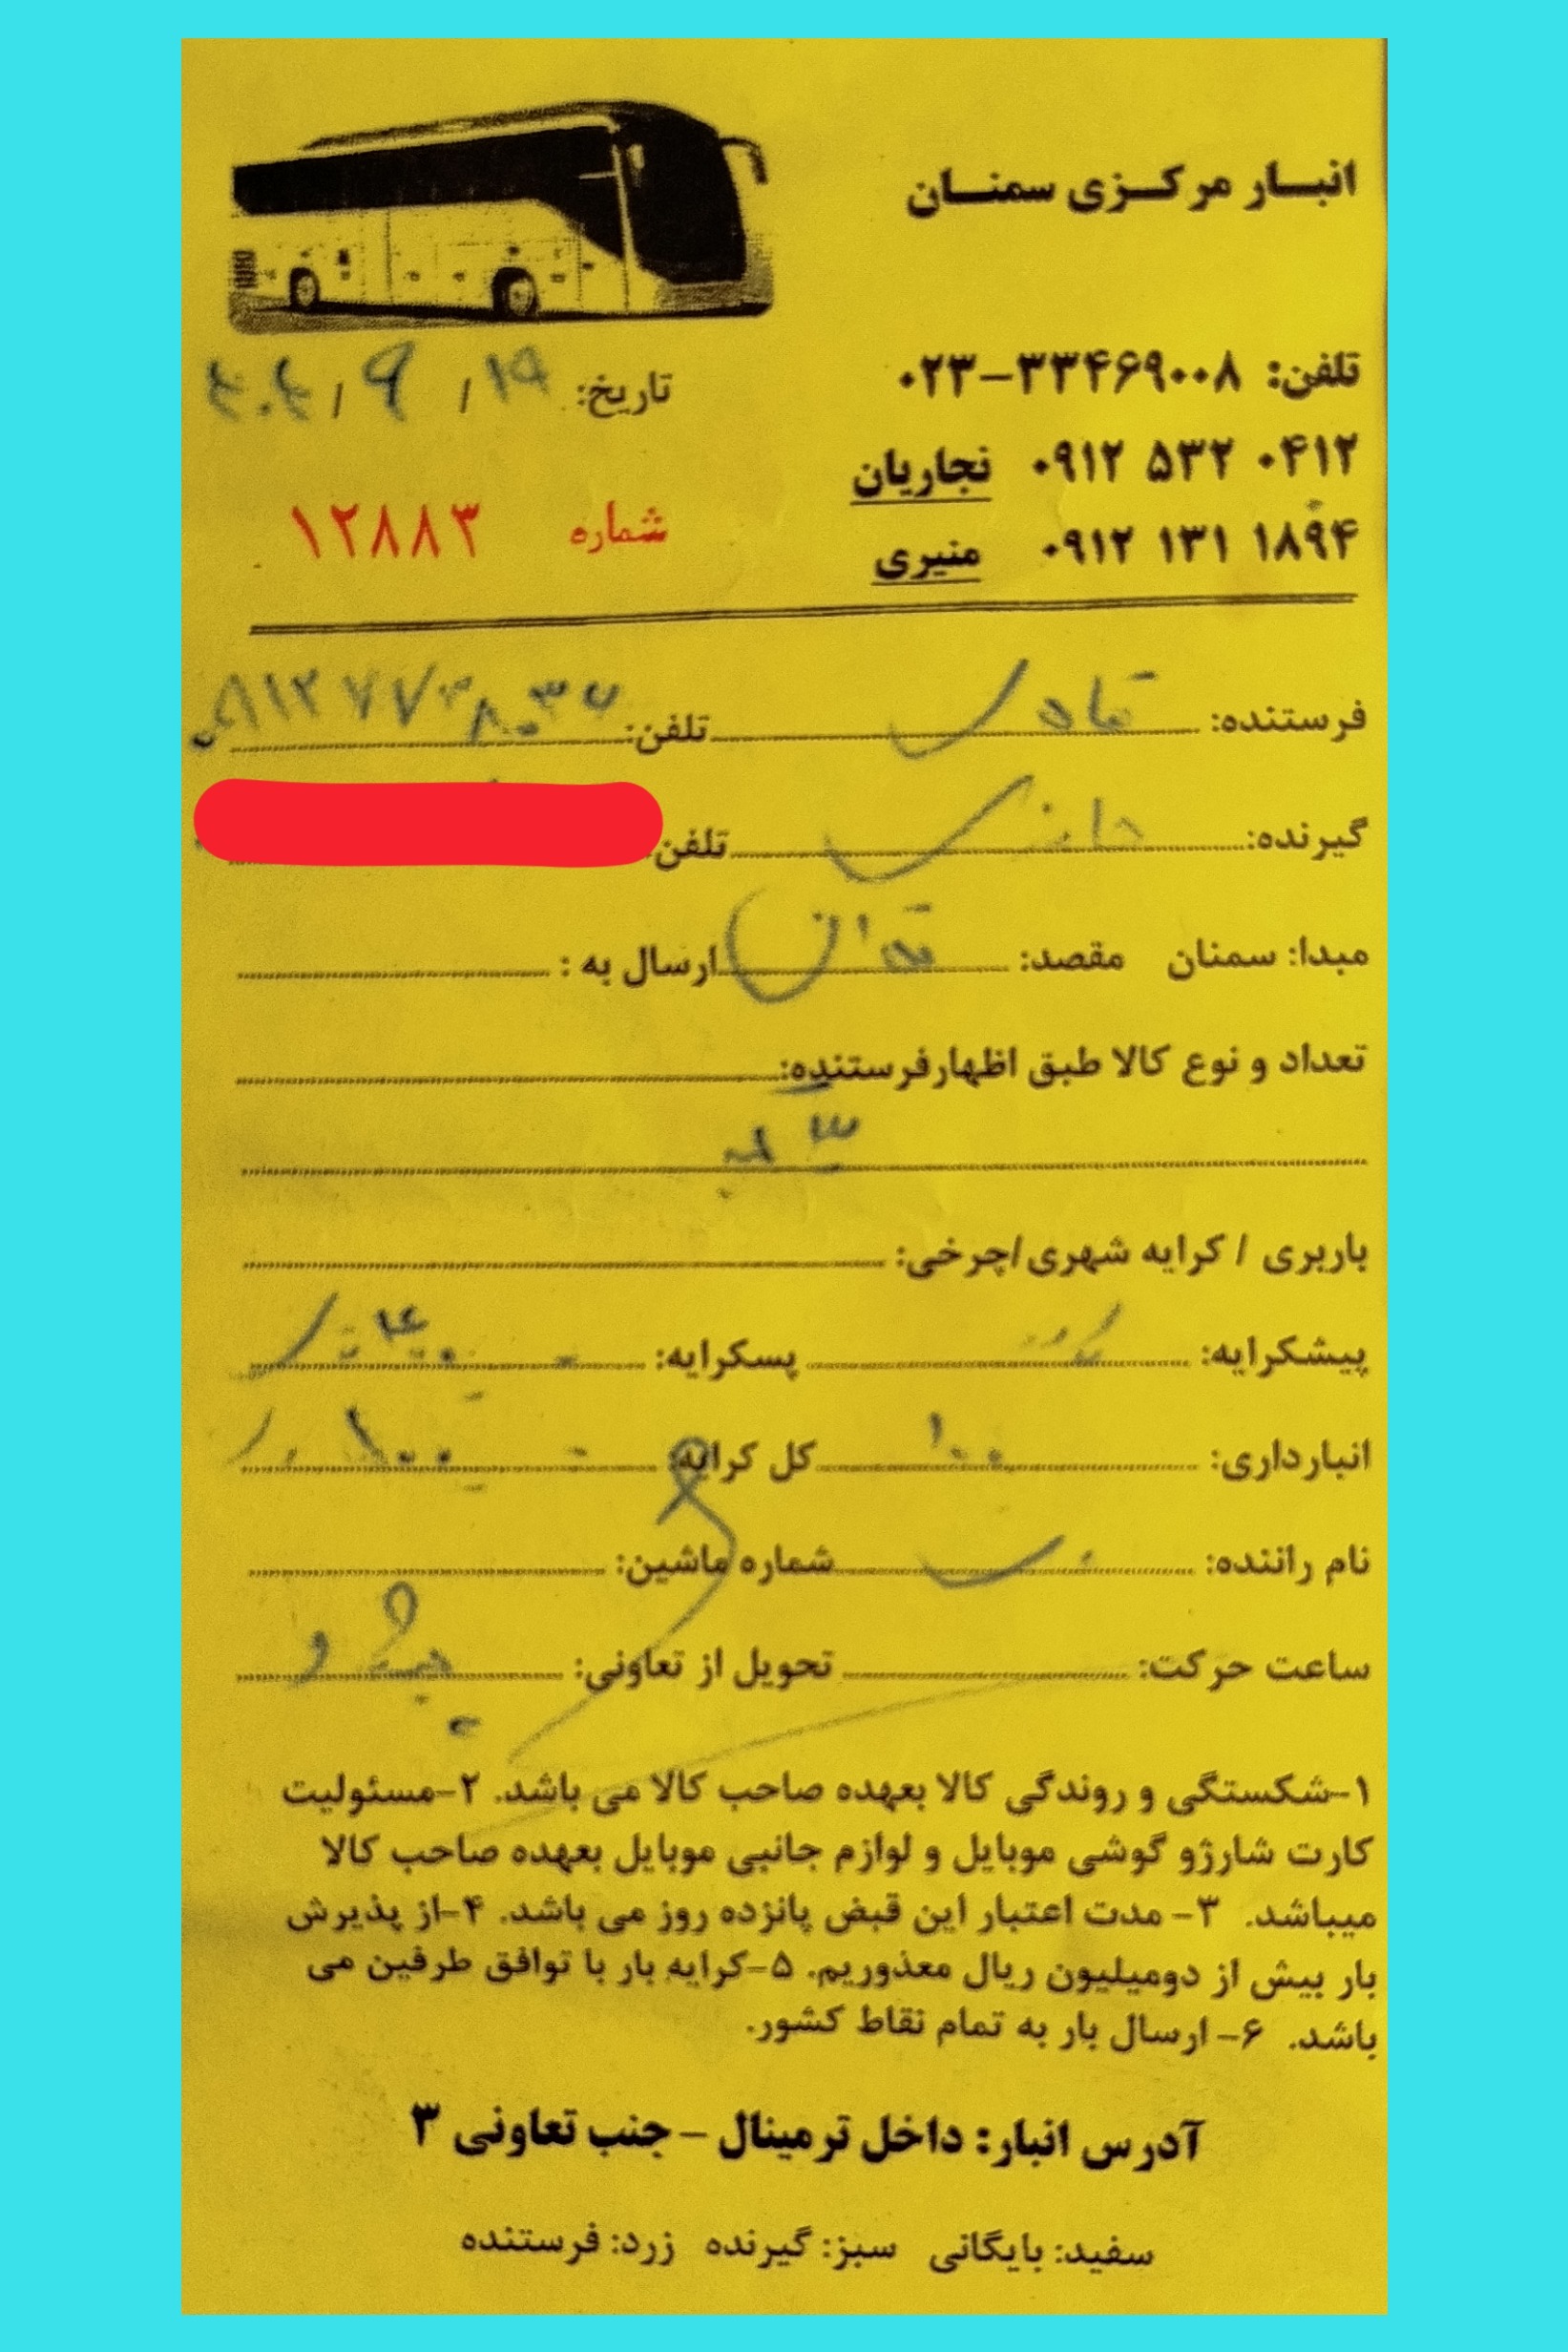 انبار مرکزی سمنان
تلفن: ۰۲۳-۳۳۴۶۹۰۰۸
تاریخ: ۱۹ / ۹ / ۴۰۴
۰۹۱۲ ۵۳۲ ۰۴۱۲ نجاریان
شماره ۱۲۸۸۳
۰۹۱۲ ۱۳۱ ۱۸۹۴ منیری
فرستنده: تلفن:
گیرنده: تلفن
مبدا: سمنان مقصد: تهران ارسال به :
تعداد و نوع کالا طبق اظهارفرستنده:
باربری / کرایه شهری/چرخی:
پیشکرایه: پسکرایه:
انبارداری: ۱۰۰ کل کرایه: ۱۰۰
نام راننده: شماره ماشین:
ساعت حرکت: تحویل از تعاونی:
۱-شکستگی و روندگی کالا بعهده صاحب کالا می باشد. ۲-مسئولیت
کارت شارژو گوشی موبایل و لوازم جانبی موبایل بعهده صاحب کالا
میباشد. ۳- مدت اعتبار این قبض پانزده روز می باشد. ۴-از پذیرش
بار بیش از دومیلیون ریال معذوریم. ۵-کرایه بار با توافق طرفین می
باشد. ۶- ارسال بار به تمام نقاط کشور.
آدرس انبار: داخل ترمینال - جنب تعاونی ۳
سفید: بایگانی سبز: گیرنده زرد: فرستنده